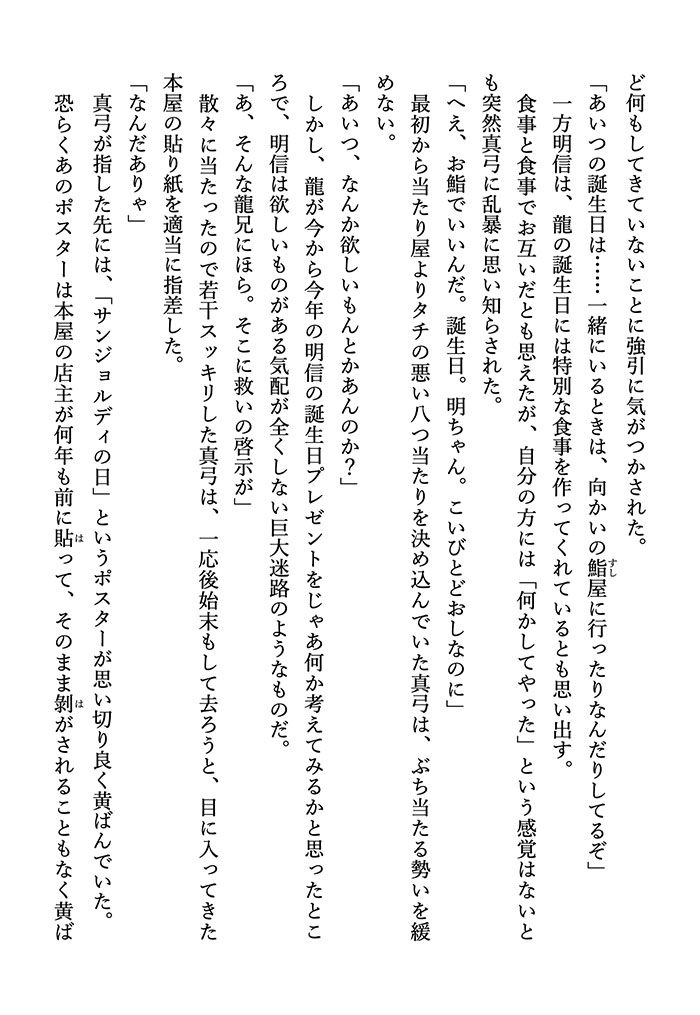 ど何もしてきていないことに強引に気がつかされた。
「あいつの誕生日は……一緒にいるときは、向かいの鮨屋に行ったりなんだりしてるぞ」
一方明信は、龍の誕生日には特別な食事を作ってくれているとも思い出す。
食事と食事でお互いだとも思えたが、自分の方には「何かしてやった」という感覚はないと
も突然真弓に乱暴に思い知らされた。
「へえ、お鮨でいいんだ。誕生日。明ちゃん。こいびとどおしなのに」
最初から当たり屋よりタチの悪い八つ当たりを決め込んでいた真弓は、ぶち当たる勢いを緩
めない。
「あいつ、なんか欲しいもんとかあんのか？」
しかし、龍が今から今年の明信の誕生日プレゼントをじゃあ何か考えてみるかと思ったとこ
ろで、明信は欲しいものがある気配が全くしない巨大迷路のようなものだ。
「あ、そんな龍兄にほら。そこに救いの啓示が」
散々に当たったので若干スッキリした真弓は、一応後始末もして去ろうと、目に入ってきた
本屋の貼り紙を適当に指差した。
「なんだありゃ」
真弓が指した先には、「サンジョルディの日」というポスターが思い切り良く黄ばんでいた。
恐らくあのポスターは本屋の店主が何年も前に貼って、そのまま剝がされることもなく黄ば